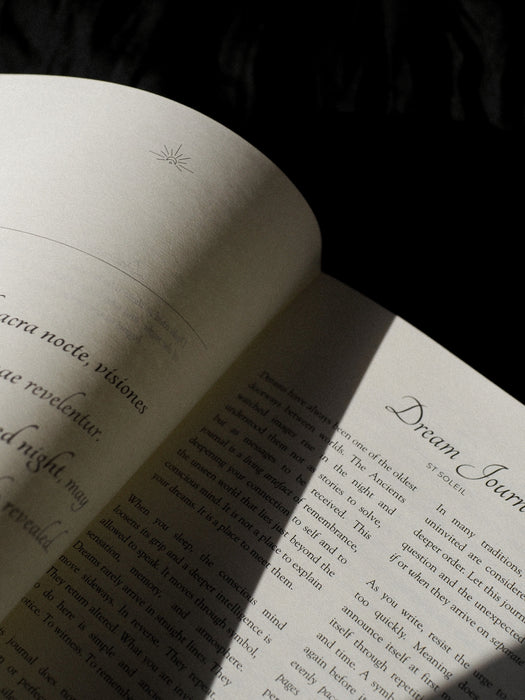 acra nocte, visiones
ae revelentur.
ed night, may
revealed
Dream Journ
ST SOLEIL
Dreams have always been one of the oldest
doorways between worlds. The Ancients
watched images in the night and
understood them not as stories to solve,
but as messages to be received. This
journal is a living artefact of remembrance,
deepening your connection to self and to
the unseen world that lies just beyond the
conscious mind. It is not a place to explain
your dreams. It is a place to meet them.
When you sleep, the conscious mind
loosens its grip and a deeper intelligence is
allowed to speak. It moves through symbol,
sensation, memory, and atmosphere.
Dreams rarely arrive in straight lines. They
move sideways. In reverse. They
They return altered. What you are
o do here is simple and
stice. To witness. To remember
is journal does not
n or
In many traditions,
uninvited are considere
deeper order. Let this journ
question and the unexpected
if or when they arrive on separat
As you write, resist the urge to
too quickly. Meaning
announce itself at first
itself through
and time. A symb
again before
evenly
pages